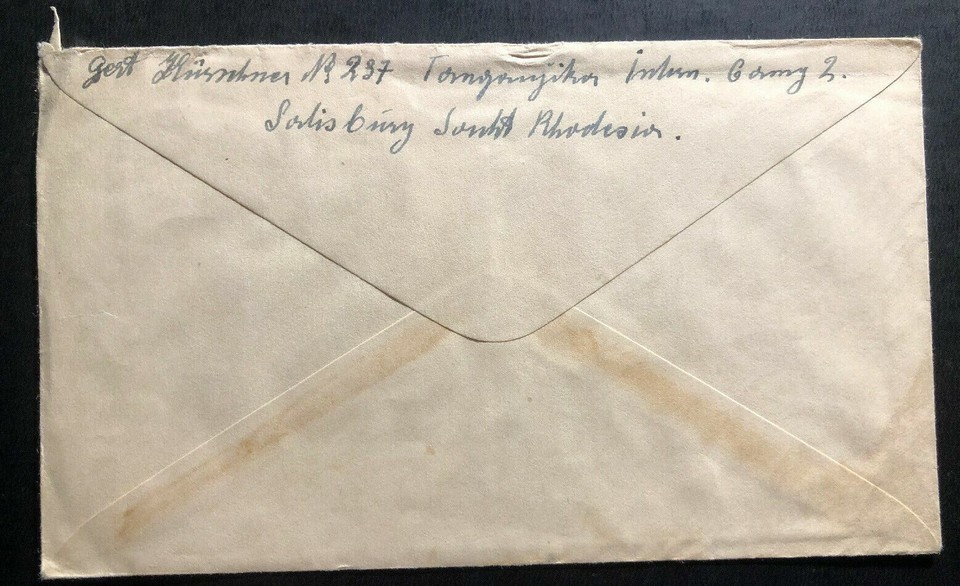 Gert Hürschner № 237 Tanganjika Intern. Camp 2.
Salisbury Rhodesia.